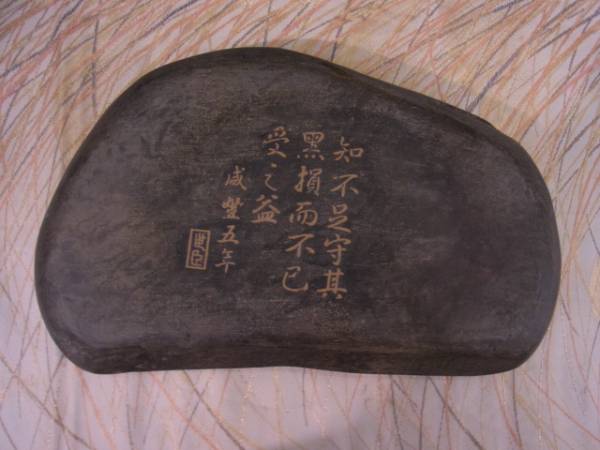 知不足守其
黑損而不已
受之益
咸豐五年
世臣